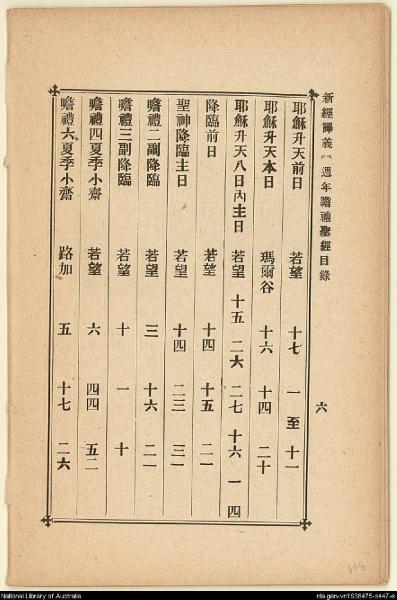 新經譯義 週年瞻禮聖經目錄 六
耶穌升天前日 若望 十七 一 至 十一
耶穌升天本日 瑪爾谷 十六 十四 二十
耶穌升天八日內主日 若望 十五 二六 二七 十六 一 四
降臨前日 若望 十四 十五 二一
聖神降臨主日 若望 十四 二三 三一
瞻禮二副降臨 若望 三 十六 二一
瞻禮三副降臨 若望 十 一 十
瞻禮四夏季小齋 若望 六 四四 五二
瞻禮六夏季小齋 路加 五 十七 二六
National Library of Australia
nla.gen-vn1938475-s447-e